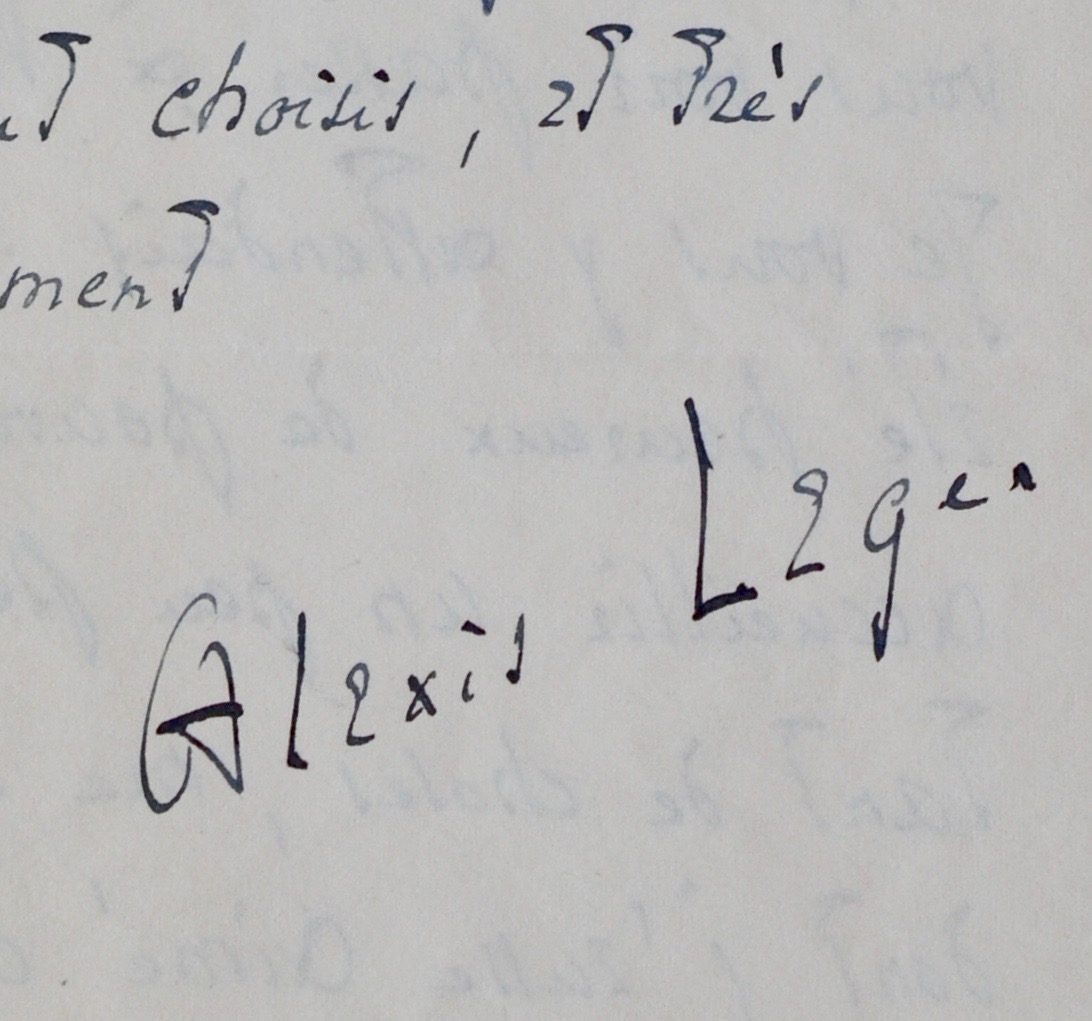 choisis, et très
ment
Alexis Leger